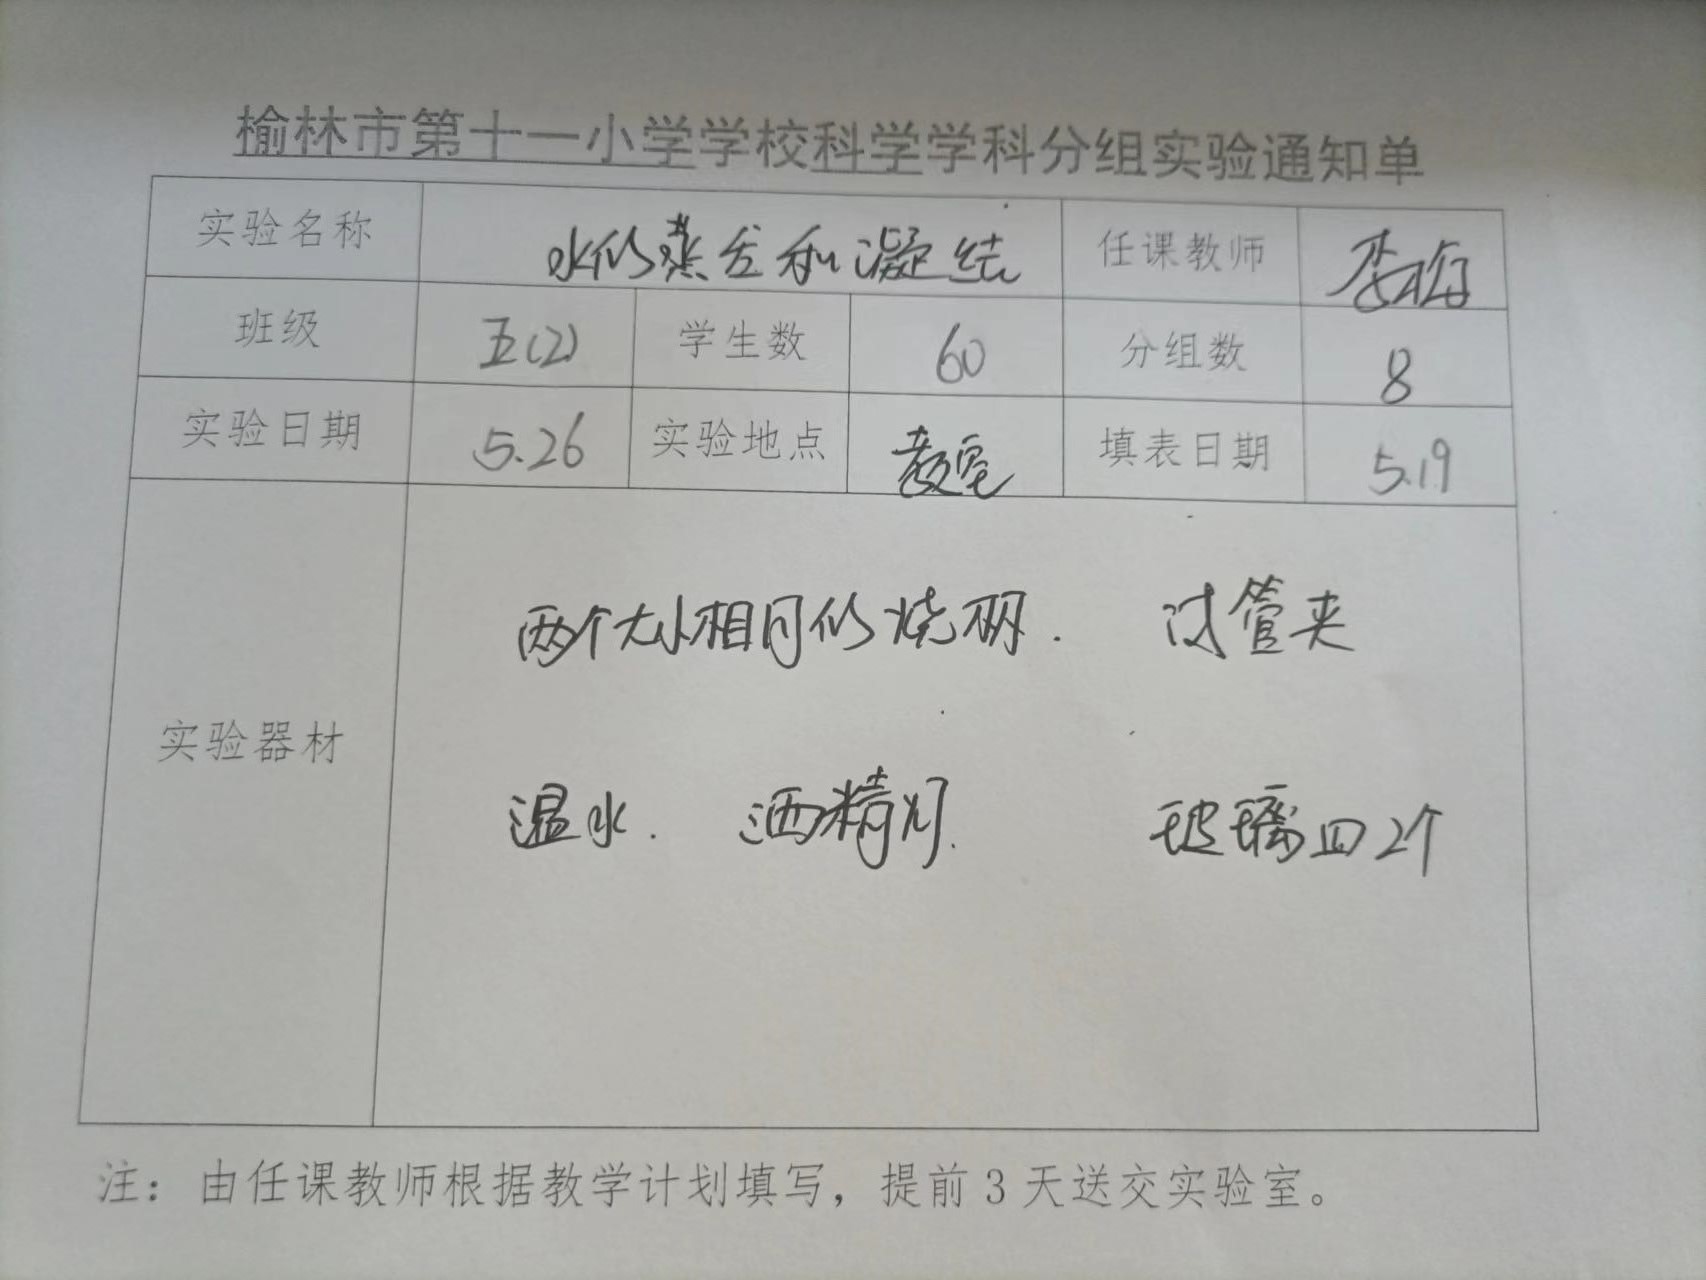 榆林市第十一小学学校科学学科分组实验通知单
实验名称 水的蒸发和凝结 任课教师 李梅
班级 五(2) 学生数 60 分组数 8
实验日期 5.26 实验地点 教室 填表日期 5.19
两个大小相同的烧杯. 试管夹
实验器材
温水. 酒精灯. 玻璃皿2个
注：由任课教师根据教学计划填写，提前3天送交实验室。